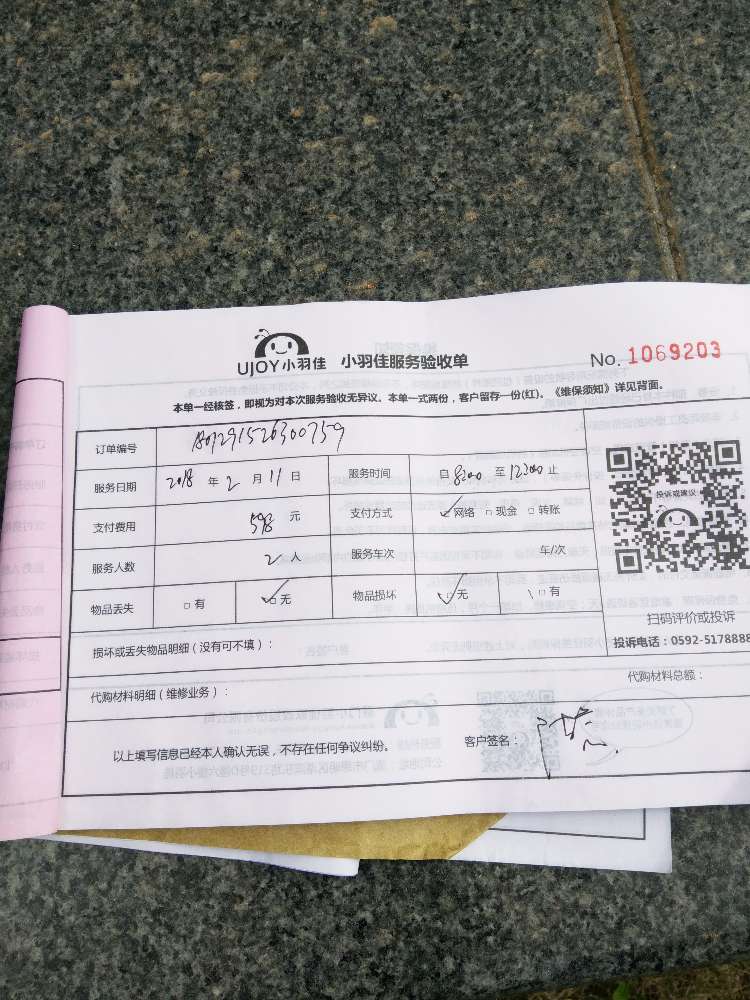 UJOY小羽佳 小羽佳服务验收单 No. 1069203
本单一经核签，即视为对本次服务验收无异议。本单一式两份，客户留存一份(红)。《维保须知》详见背面。
订单编号 A01291526300759
服务日期 2018 年 2 月 11 日 服务时间 自 8:00 至 12:00 止
支付费用 598 元 支付方式 ✓网络 □现金 □转账
服务人数 2 人 服务车次 车/次
物品丢失 □有 ✓□无 物品损坏 ✓□无 \□有
投诉或建议
扫码评价或投诉
投诉电话：0592-5178888
损坏或丢失物品明细（没有可不填）：
代购材料明细（维修业务）： 代购材料总额：
以上填写信息已经本人确认无误，不存在任何争议纠纷。 客户签名：